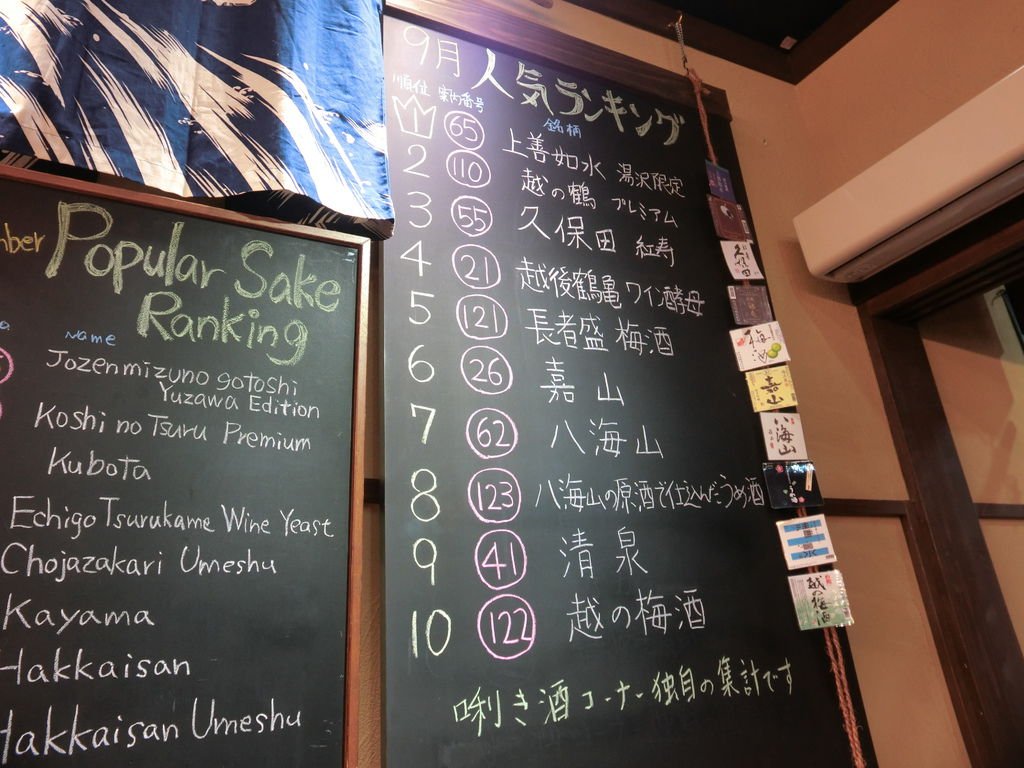 ber
Popular Sake
Ranking
Name
Jozenmizuno gotoshi
Yuzawa Edition
Koshi no Tsuru Premium
Kubota
Echigo Tsurukame Wine Yeast
Chojazakari Umeshu
Kayama
Hakkaisan
Hakkaisan Umeshu
9月 人気ランキング
順位 案内番号 銘柄
1 65 上善如水 湯沢限定
2 110 越の鶴 プレミアム
3 55 久保田 紅寿
4 21 越後鶴亀 ワイン酵母
5 121 長者盛 梅酒
6 26 嘉山
7 62 八海山
8 123 八海山の原酒で仕込んだうめ酒
9 41 清泉
10 122 越の梅酒
唎き酒コーナー独自の集計です
久保田
梅酒
嘉山
八海山
越の梅酒